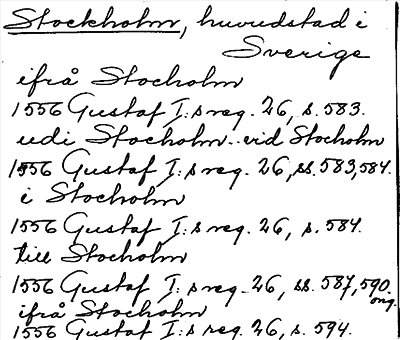 Stockholm, huvudstad i
Sverige
ifrå Stocholm
1556 Gustaf I:s reg. 26, s. 583.
udi Stocholm.. vid Stocholm
1556 Gustaf I:s reg. 26, ss. 583, 584.
i Stocholm
1556 Gustaf I:s reg. 26, s. 584.
till Stocholm
1556 Gustaf I:s reg. 26, ss. 587, 590.
ong.
ifrå Stocholm
1556 Gustaf I:s reg. 26, s. 594.